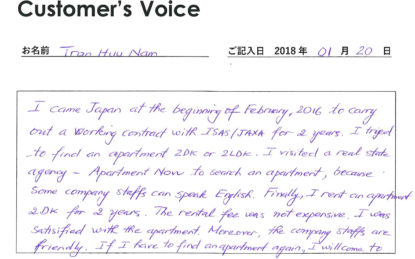 Customer's Voice
お名前 Tran Huu Nam ご記入日 2018 年 01 月 20 日
I came Japan at the beginning of February, 2016 to carry
out a working contract with ISAS/JAXA for 2 years. I tryed
to find an apartment 2DK or 2LDK. I visited a real state
agency - Apartment Now to search an apartment, because
some company staffs can speak English. Finally, I rent an apartment
2DK for 2 years. The rental fee was not expensive. I was
satisified with the apartment. Moreover, the company staffs are
friendly. If I have to find an apartment again, I will come to